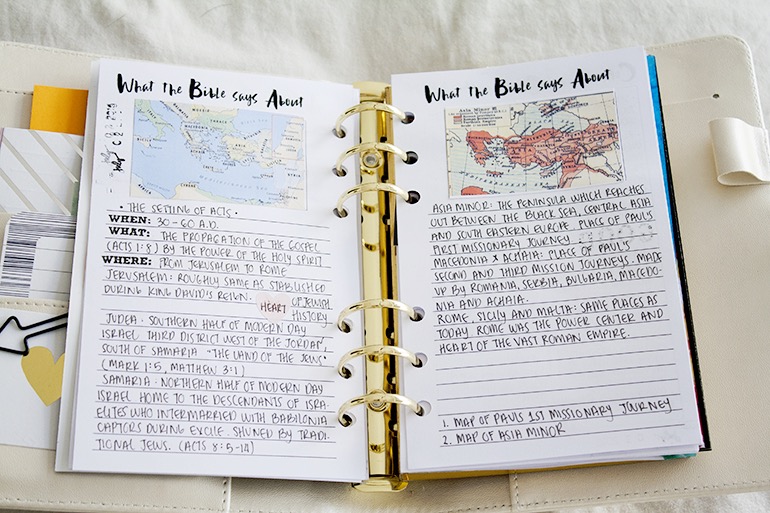 What the Bible says About
• THE SETTING OF ACTS •
WHEN: 30 - 60 A.D.
WHAT: THE PROPAGATION OF THE GOSPEL
(ACTS 1:8) BY THE POWER OF THE HOLY SPIRIT
WHERE: FROM JERUSALEM TO ROME
JERUSALEM: ROUGHLY SAME AS STABLISHED
DURING KING DAVID'S REIGN. HEART OF JEWISH
HISTORY
JUDEA: SOUTHERN HALF OF MODERN DAY
ISRAEL. THIRD DISTRICT WEST OF THE JORDAN,
SOUTH OF SAMARIA "THE LAND OF THE JEWS",
(MARK 1:5, MATTHEW 3:1)
SAMARIA: NORTHERN HALF OF MODERN DAY
ISRAEL HOME TO THE DESCENDANTS OF ISRA
ELITES WHO INTERMARRIED WITH BABILONIA
CAPTORS DURING EXCILE. SHUNED BY TRADI
TIONAL JEWS. (ACTS 8:5-14)
What the Bible says About
Asia Minor
ASIA MINOR: THE PENINSULA WHICH REACHES
OUT BETWEEN THE BLACK SEA, CENTRAL ASIA
AND SOUTH EASTERN EUROPE. PLACE OF PAUL'S
FIRST MISSIONARY JOURNEY
MACEDONIA & ACHAIA: PLACE OF PAUL'S
SECOND AND THIRD MISSION JOURNEYS. MADE
UP BY ROMANIA, SERBIA, BULGARIA, MACEDO-
NIA AND ACHAIA.
ROME, SICILY AND MALTA: SAME PLACES AS
TODAY. ROME WAS THE POWER CENTER AND
HEART OF THE VAST ROMAN EMPIRE.
1. MAP OF PAUL'S 1ST MISSIONARY JOURNEY
2. MAP OF ASIA MINOR